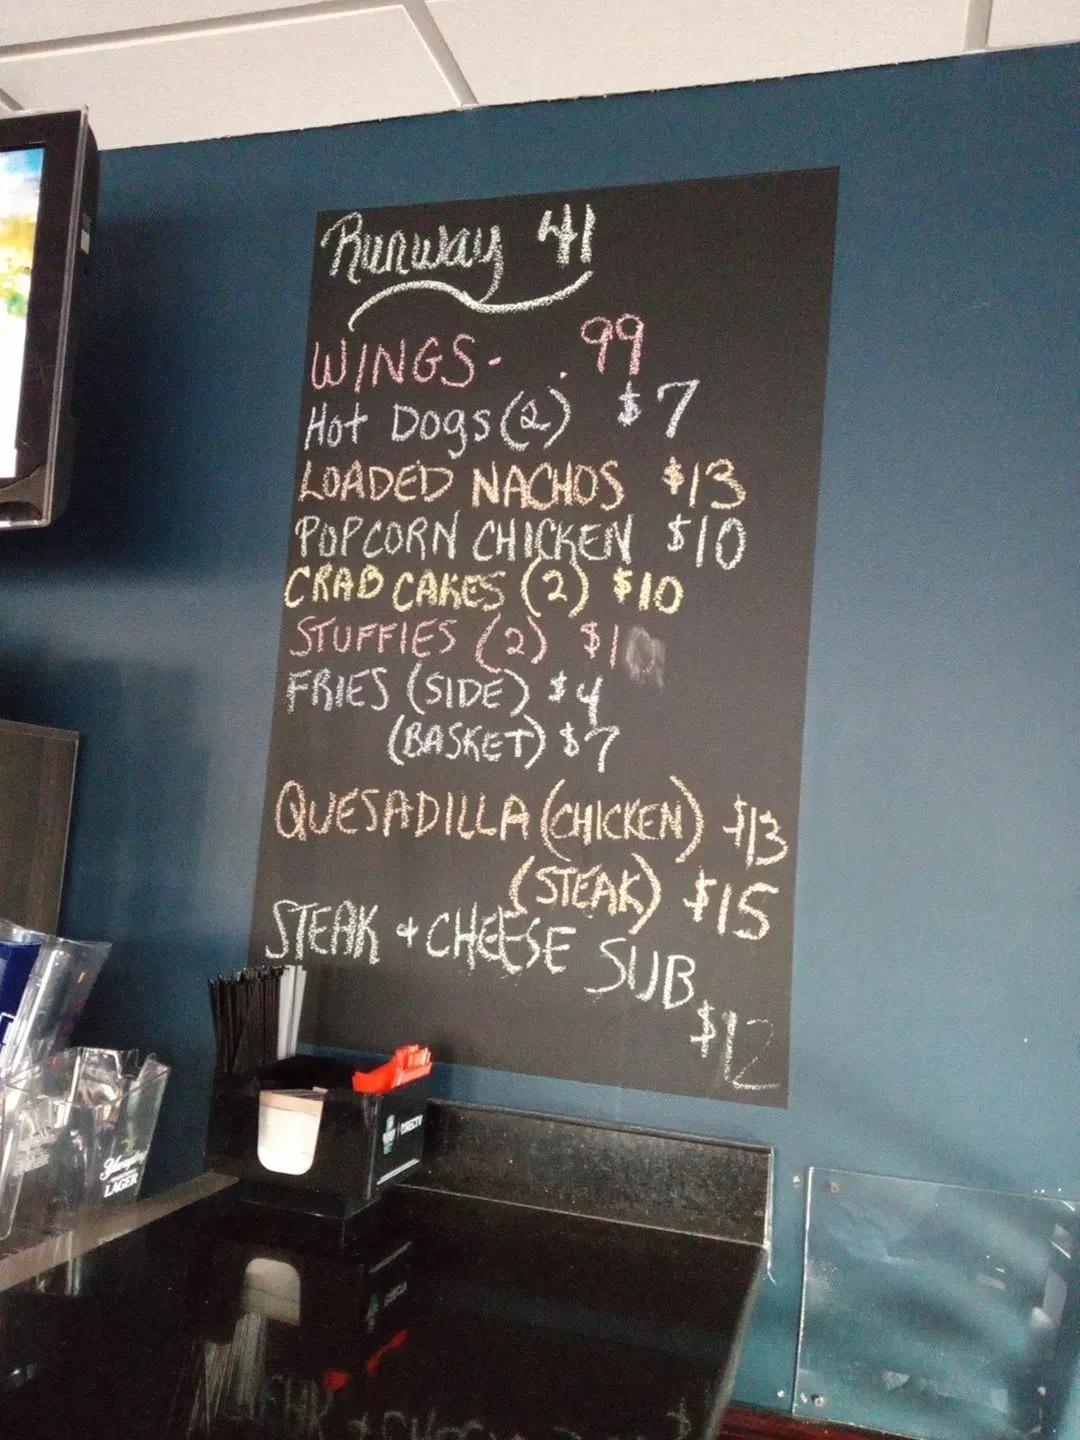 Runway 41
WINGS- .99
Hot Dogs (2) $7
LOADED NACHOS $13
POPCORN CHICKEN $10
CRAB CAKES (2) $10
STUFFIES (2) $1
FRIES (SIDE) $4
(BASKET) $7
QUESADILLA (CHICKEN) $13
(STEAK) $15
STEAK + CHEESE SUB
$12
DIRECTV
Yuengling
LAGER